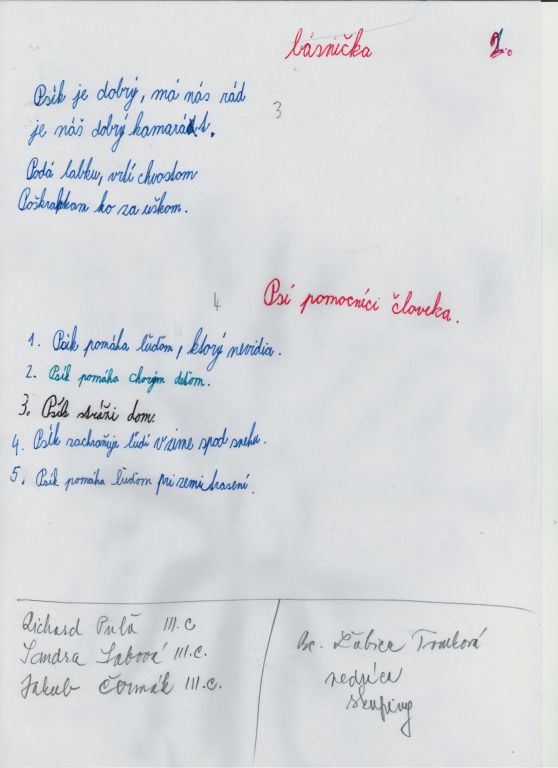 básnička
2.
Psík je dobrý, má nás rád
3
je náš dobrý kamarát.
Podá labku, vrtí chvostom
Poškrabkam ho za uškom.
4
Psí pomocníci človeka.
1. Psík pomáha ľuďom, ktorý nevidia.
2. Psík pomáha chorým deťom.
3. Psík stráži dom.
4. Psík zachraňuje ľudí v zime spod snehu.
5. Psík pomáha ľuďom pri zemi trasení.
Richard III.C
Sandra Sabová III.C.
Jakub Čermák III.C.
Bc. Ľubica
vedúca
skupiny